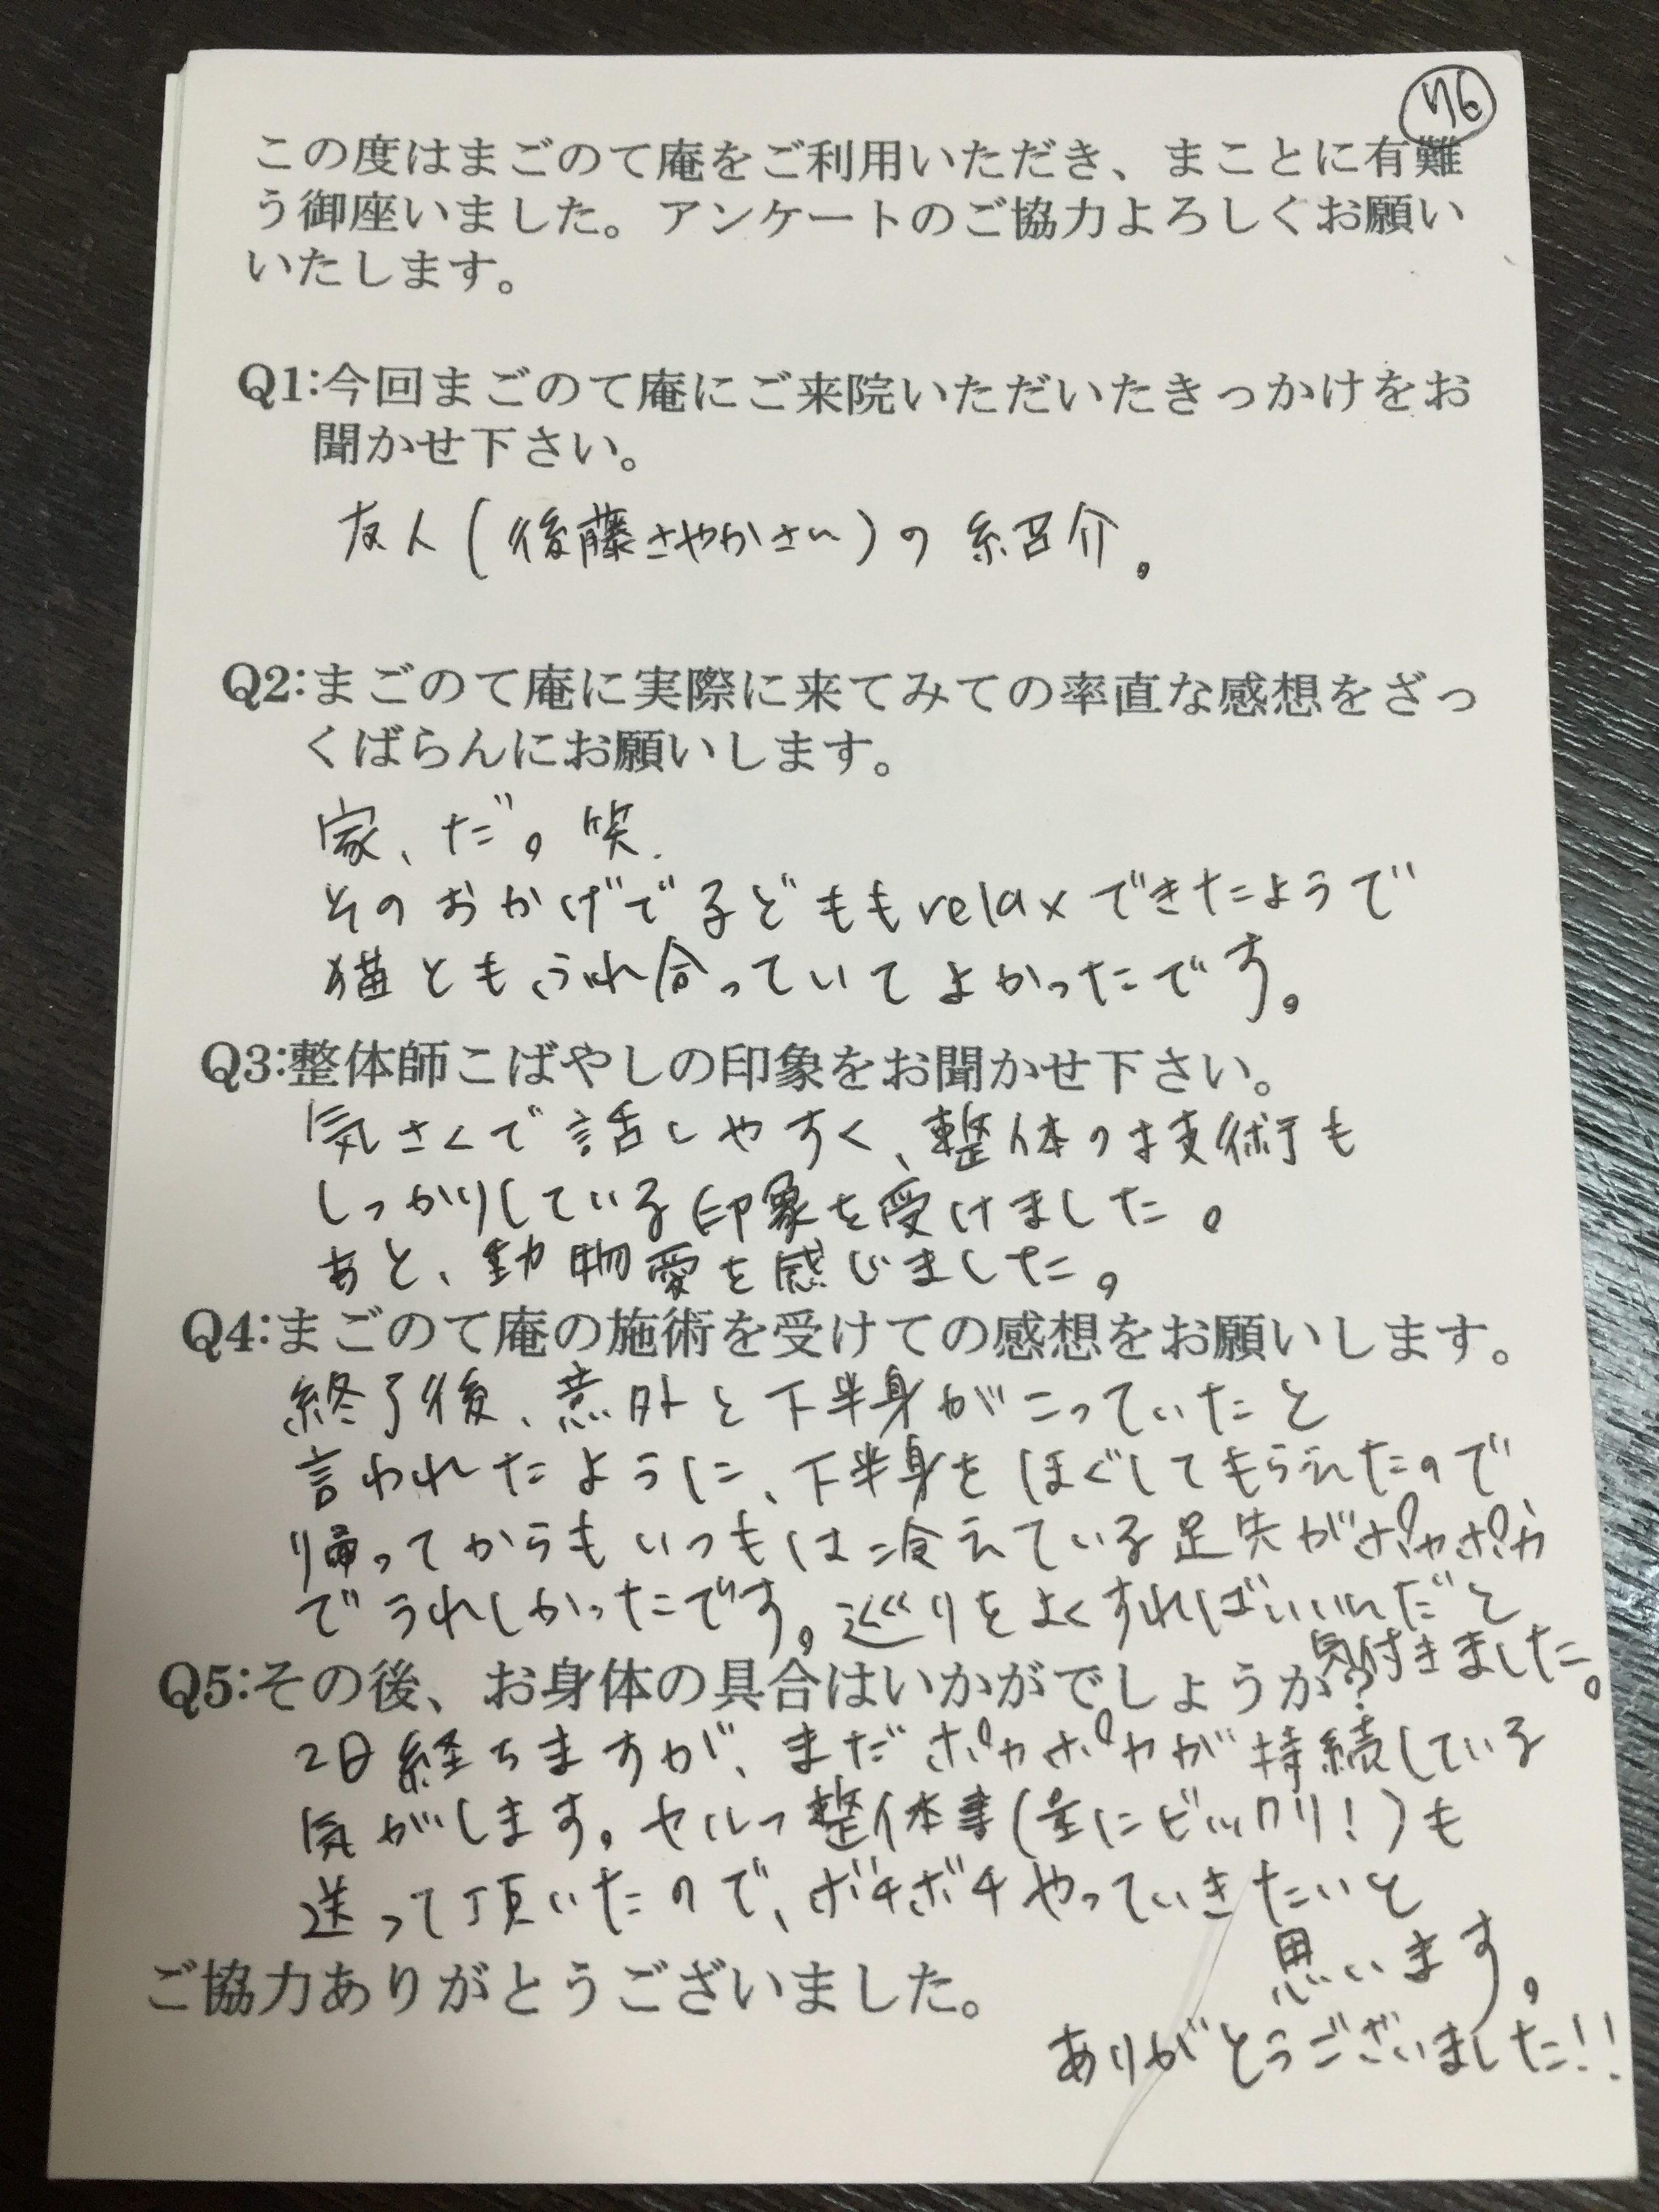 76
この度はまごのて庵をご利用いただき、まことに有難
う御座いました。アンケートのご協力よろしくお願い
いたします。
Q1:今回まごのて庵にご来院いただいたきっかけをお
聞かせ下さい。
友人(後藤さやかさん)の紹介。
Q2:まごのて庵に実際に来てみての率直な感想をざっ
くばらんにお願いします。
家、だ。笑.
そのおかげで子どももrelaxできたようで
猫ともふれ合っていてよかったです。
Q3:整体師こばやしの印象をお聞かせ下さい。
気さくで話しやすく、整体の技術も
しっかりしている印象を受けました。
あと、動物愛を感じました。
Q4:まごのて庵の施術を受けての感想をお願いします。
終了後、意外と下半身がこっていたと
言われたように、下半身をほぐしてもらえたので
帰ってからもいつもは冷えている足先がポカポカ
でうれしかったです。巡りをよくすればいいんだと
気付きました。
Q5:その後、お身体の具合はいかがでしょうか?
2日経ちますが、まだポカポカが持続している
気がします。セルフ整体書(量にビックリ!)も
送って頂いたので、ボチボチやっていきたいと
思います。
ご協力ありがとうございました。
ありがとうございました!!